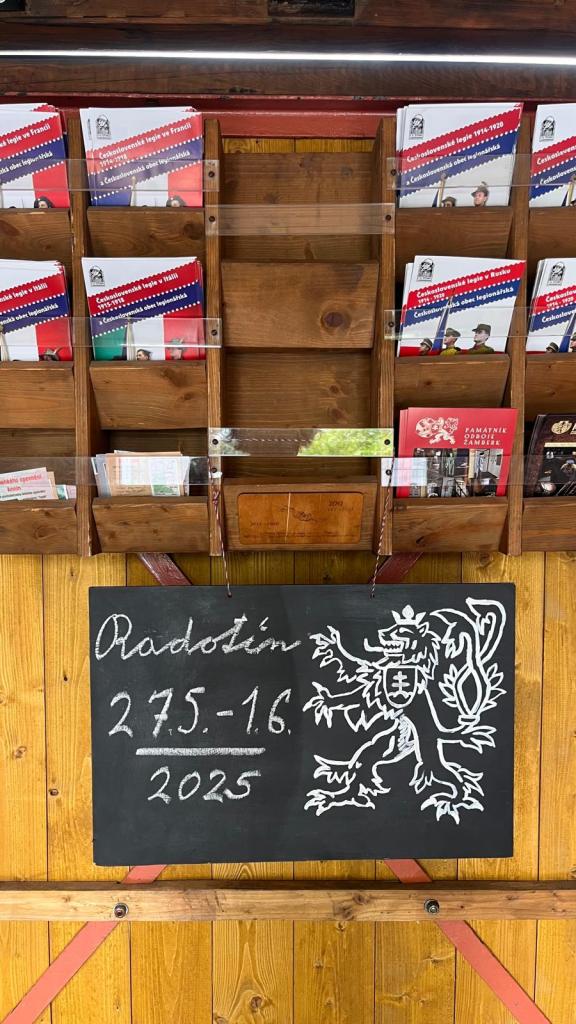 Československé legie ve Francii
Československé legie ve Francii
1914-1918
a Československá obec legionářská
Československé legie 1914-1920
a Československá obec legionářská
Československé legie v Itálii
Československé legie v Itálii
1915-1918
a Československá obec legionářská
Československé legie v Rusku
1914 - 1920
a Československá obec legionářská
PAMÁTNÍK
ODBOJE
ŽAMBERK
Radotín
27.5.-1.6.
2025